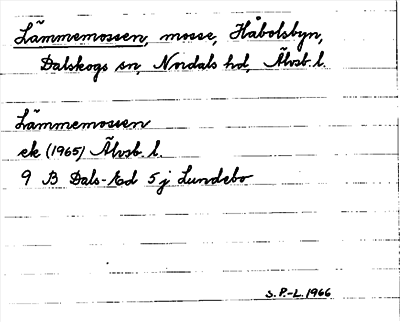 Lämmemossen, mosse, Håbolsbyn,
Dalskogs sn, Nordals hd, Älvsb. l.
Lämmemossen
ek (1965) Älvsb. l.
9 B Dals-Ed 5 j Lundebo
S.P.-L. 1966